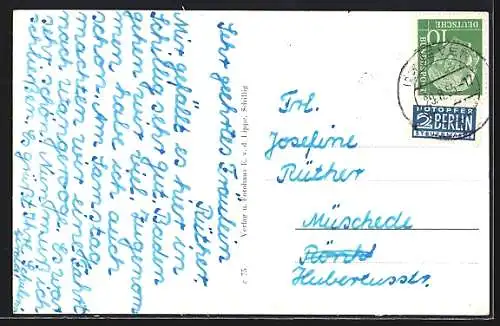 Sehr geehrtes Fräulein
Rüther.
Mir gefällt es hier in
Schillig sehr gut. Baden
gehn wir viel. Zugenom
men habe ich auch
schon. Am Samstag
machten wir eine Fahrt
nach Wangeroog. Es war
sehr schön. Nun muß ich
schließen. Es grüßt
c 75 Verlag u. Fotohaus E. v. d. Lippe, Schillig
10
DEUTSCHE
BUNDESPOST
NOTOPFER
2 BERLIN
STEUERMARKE
Frl.
Josefine
Rüther
Müschede
Hubertusstr.